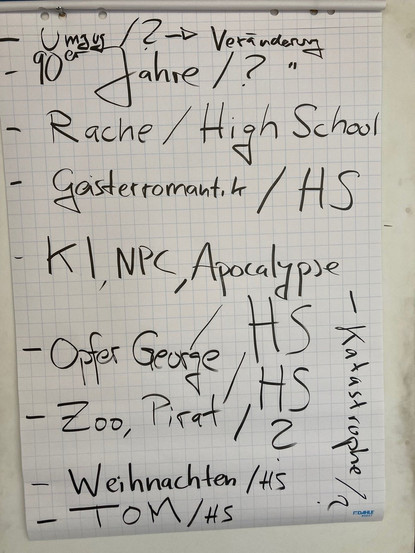 - Umzug / ? → Veränderung
- 90er Jahre / ? "
- Rache / High School
- Geisterromantik / HS
- KI, NPC, Apocalypse / HS
- Opfer George / HS
- Zoo, Pirat / ?
- Weihnachten / HS
- TOM / HS
- Katastrophe / ?
DAHLE